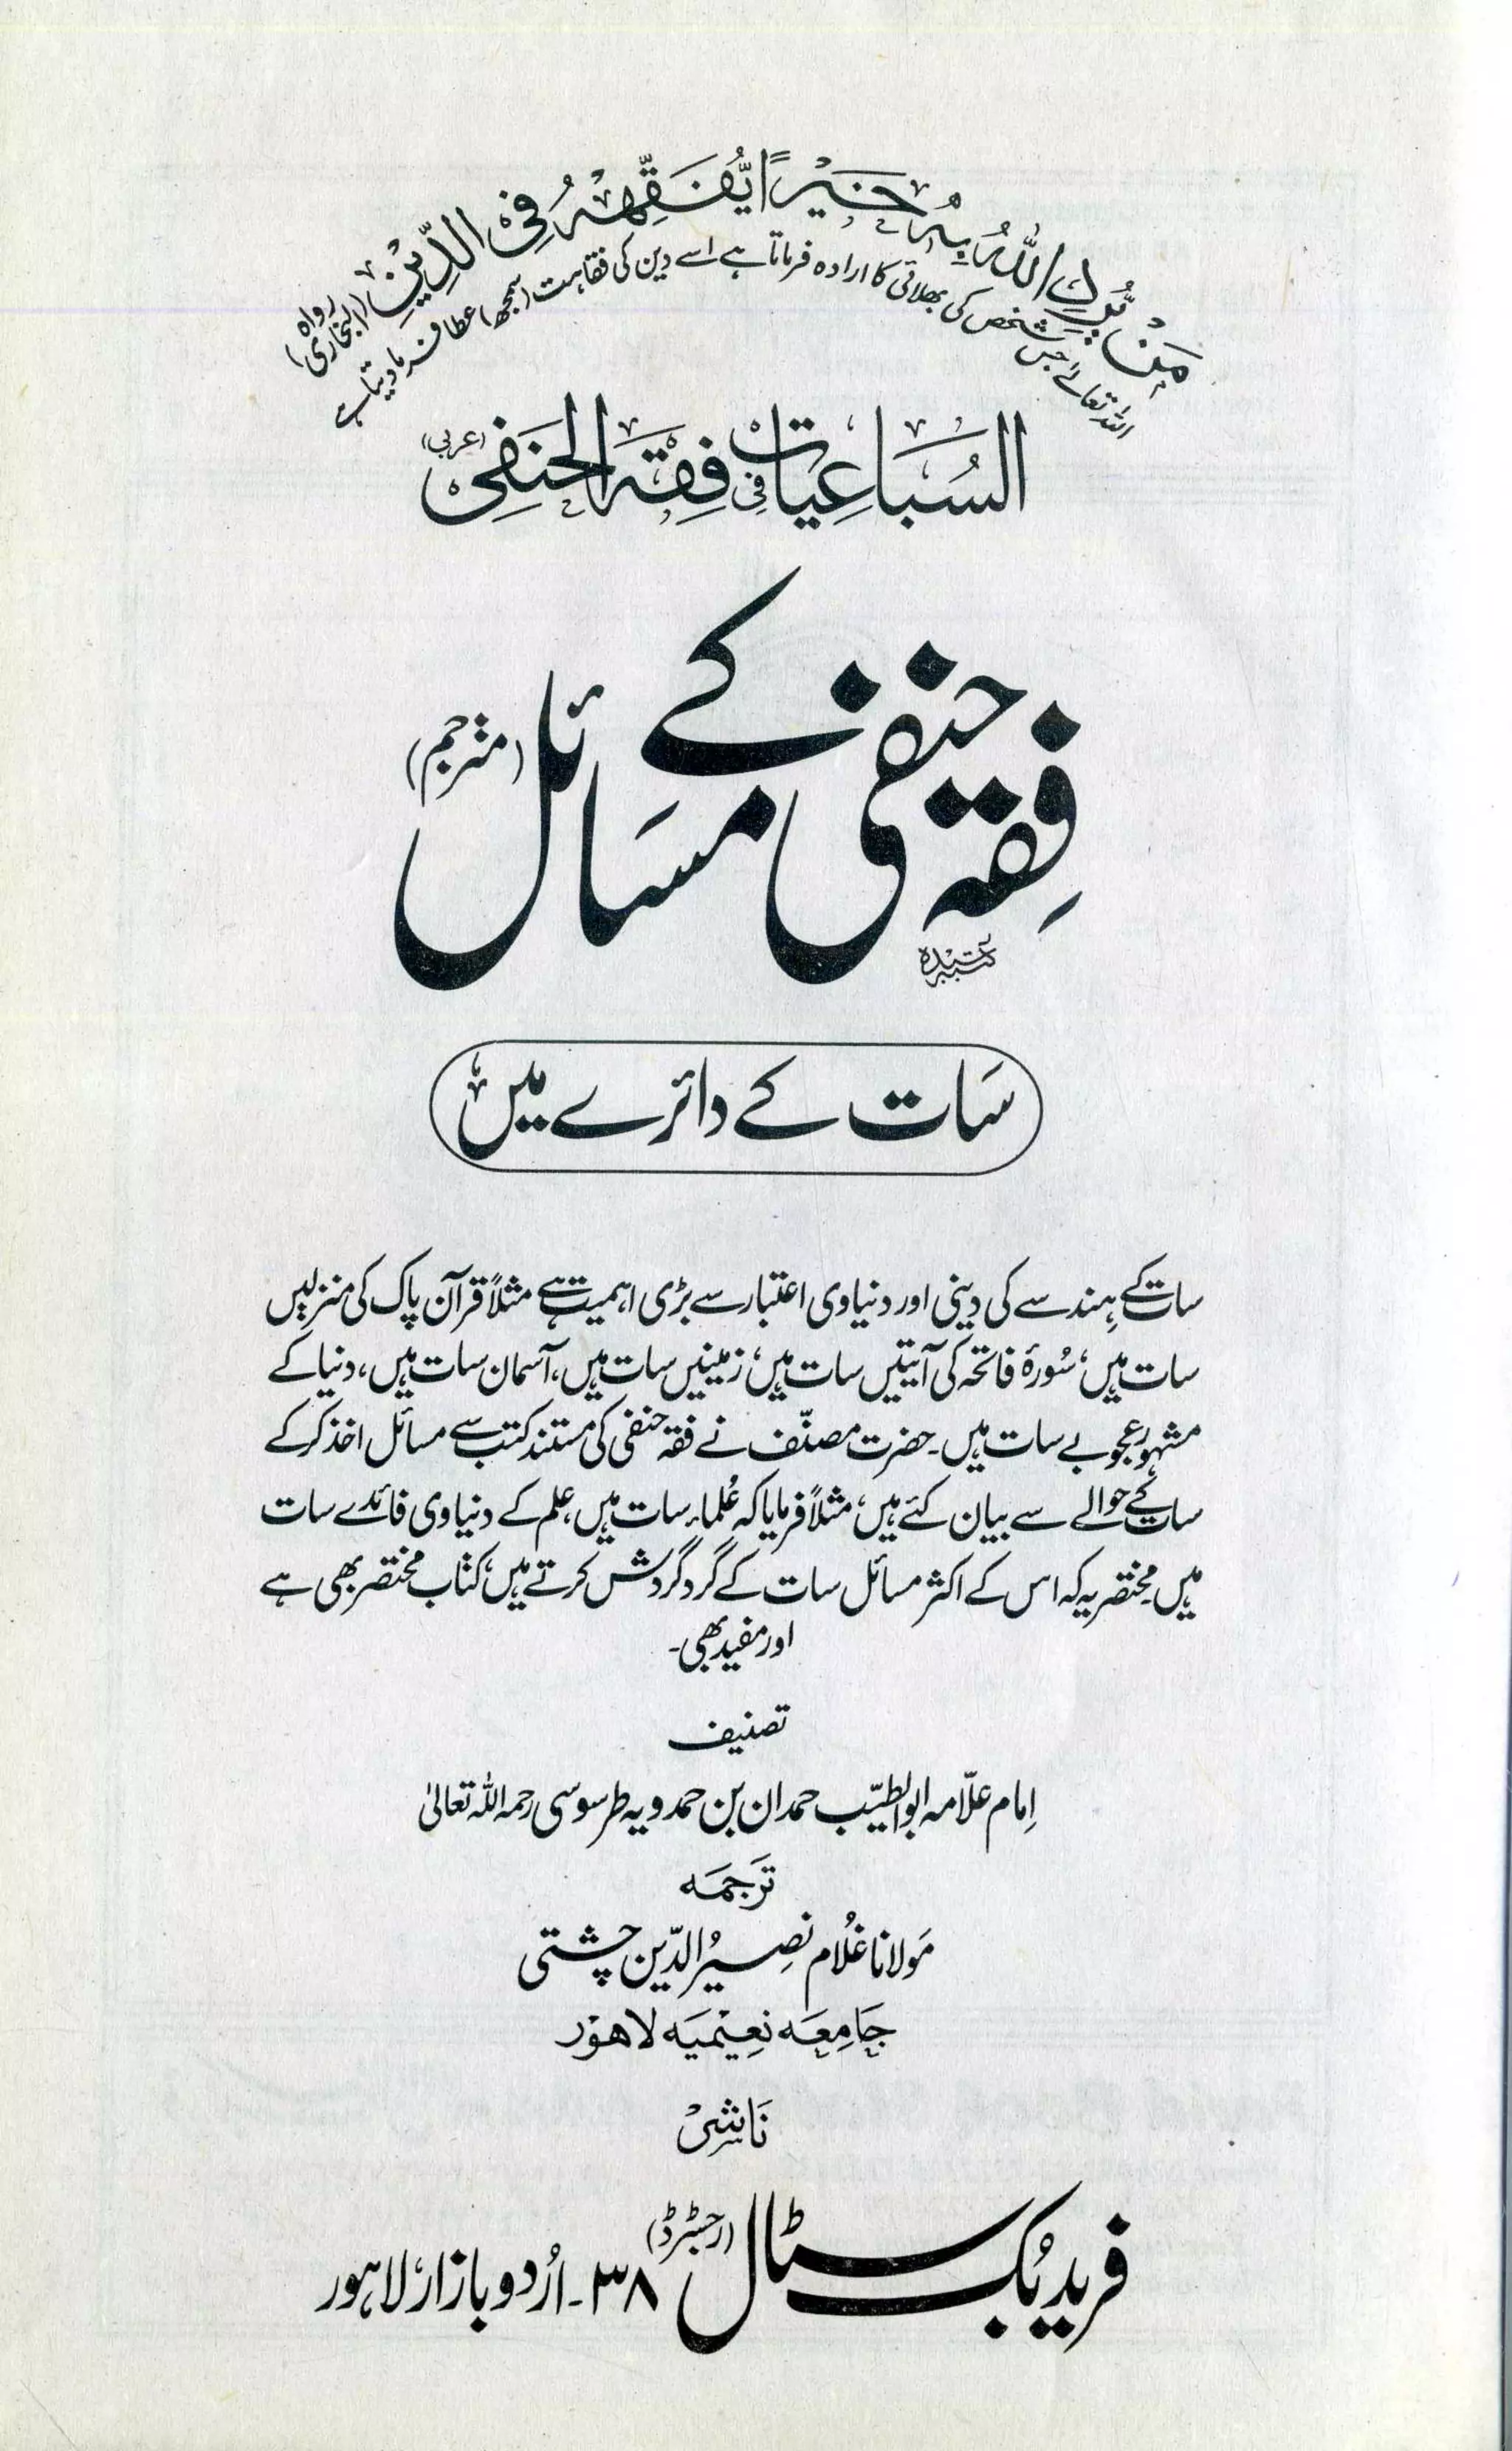 مَنْ يُّرِدِ اللّٰهُ بِهٖ خَيْرًا يُّفَقِّهْهُ فِى الدِّيْنِ (رواه البخاری)
اللہ تعالےٰ جس شخص کی بھلائی کا ارادہ فرماتا ہے اسے دین کی فقاہت (سمجھ) عطا فرما دیتا ہے
السُبَاعِيَات فِي فِقهِ الحَنَفِى (عربی)
فِقہ حنفی کے مسَائل (مترجم)
سَات کے دائرے میں
سات کے ہندسے کی دینی اور دنیاوی اعتبار سے بڑی اہمیت ہے مثلاً قرآن پاک کی منزلیں
سات ہیں، سُورۂ فاتحہ کی آیتیں سات ہیں، زمینیں سات ہیں، آسمان سات ہیں، دنیا کے
مشہور عجوبے سات ہیں۔ حضرت مصنّف نے فقہ حنفی کی مستند کتب سے مسائل اخذ کر کے
سات کے حوالے سے بیان کئے ہیں، مثلاً فرمایا کہ عُلماء سات ہیں، علم کے دنیاوی فائدے سات
ہیں۔ مختصر یہ کہ اس کے اکثر مسائل سات کے گرد گردش کرتے ہیں، کتاب مختصر بھی ہے
اور مفید بھی۔
تصنیف
اِمام علّامہ ابو الطیّب حمدان بن حمدویہ طرسوسی رحمہ اللہ تعالیٰ
تَرجمَہ
مَولانا غُلام نصِیرُ الدّین چشتی
جَامِعَہ نَعِیْمِیَہ لَاھَوْر
نَاشِرْ
فرید بُک سٹال (رجسٹرڈ) ۳۸۔ اُردو بازار، لاہور